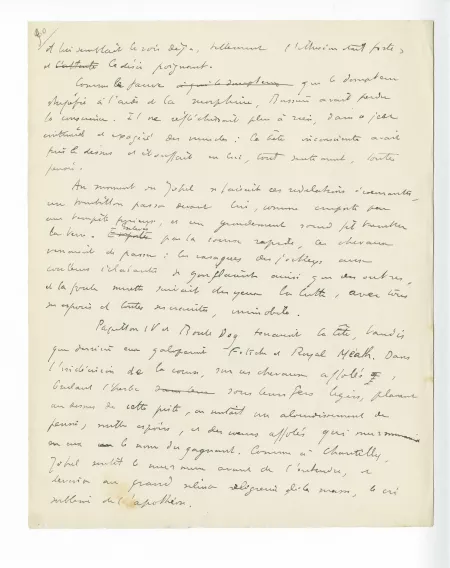 et lui semblait le voir déjà, tellement l'illusion était forte,
et le désir poignant.
Comme le fauve que le dompteur
stupéfie à l'aide de la morphine, avait perdu
la conscience. Il ne réfléchissait plus à rien, dans
et du monde : la bête inconsciente avait
pris le dessus et étouffait en lui, tout sentiment, toute
pensée.
Au moment où Jobel faisait ces révélations écœurantes,
un tourbillon passa devant lui, comme emporté par
une tempête furieuse, et un grondement sourd fit trembler
la terre. par la course rapide, les chevaux
venaient de passer : les casaques des jockeys aux
couleurs éclatantes ainsi que des outres,
et la foule muette suivait des yeux la lutte, avec tous
ses espoirs et toutes ses craintes, immobile.
Papillon IV et Dog tenaient la tête, tandis
que derrière eux galopaient Fétiche et Royal Meath. Dans
de la course, sur ces chevaux affolés
l'herbe sous leurs fers légers, planait
au dessus de cette piste, on sentait un de
pensées, mille espoirs, et des cœurs affolés qui
le nom du gagnant. Comme à Chantilly,
Jobel sentit le murmure avant de l'entendre, et
au grand silence de la masse, le cri
sublime de l'apothéose.